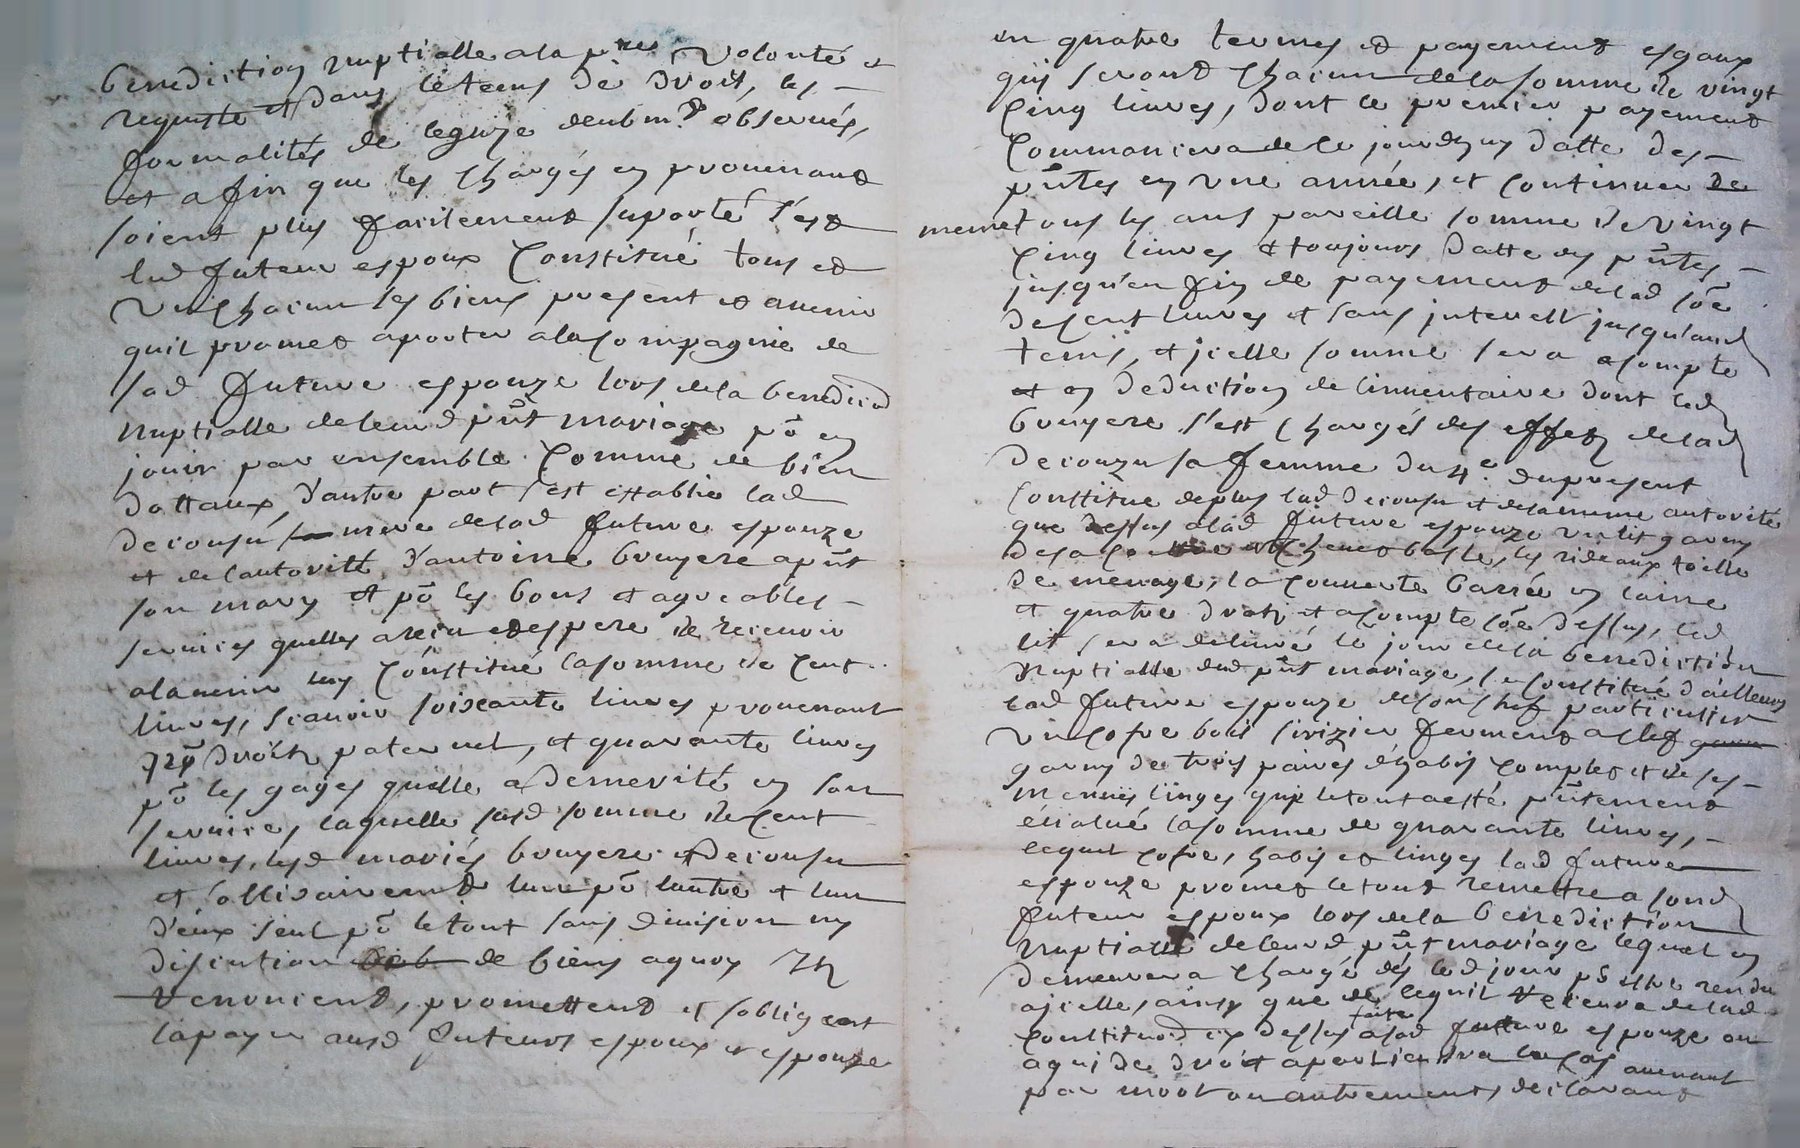 benediction nuptialle a la p.res volonté et
requiste et dans le tems de droit, les
formalités de leglize deubm.t observées,
et afin que les charges en provenant
soient plus facilement suporté s'est
led futeur espoux Constitué tous et
un chacun ses biens present et avenir
quil promet aporter a la compagnie de
sad future espouze lors de la benediction
nuptialle de leurd pñt mariage põ en
jouir par ensemble Comme de bien
dottaux, d'autre part s'est establie lad
decousu mere delad future espouze
et de lautorité d'antoine bruyere apñt
son mary et põ les bons et agreables
services quelles a receu et espere de recevoir
alavenir luy Constitué lasomme de Cent
livres, scavoir soixante livres provenant
droits paternel, et quarante livres
põ les gages quelle a demerité en son
service, laquelle susd somme de Cent
livres, lesd mariés bruyere et decousu
et sollidairement lun põ lautre et lun
d'eux seul põ le tout sans division ny
discution de biens a quoy Ils
renoncent, promettent et sobligent
la payer ausd futeurs espoux et espouze
en quatre termes et payement esgaux
quy seront Chacun de la somme de vingt
Cinq livres, dont le premier payement
Commancera de ce jourdhuy datte des
pñtes en une année, et Continuer de
meme tous les ans pareille somme de vingt
Cinq livres et toujours datte des pñtes
jusqu'en fin de payement delad sõe
de Cent livres et sans interest jusqu'aud
tems, et jcelle somme sera acompte
et en deduction de linventaire dont led
bruyere s'est Chargés des effets delad
decouzu sa femme du 4e. du present
Constitue de plus lad decousu et delameme autorité
que dessus alad future espouze un lit garny
de sa les rideaux toille
de menage, la couverte barrée en laine
et quatre draps et acompte sõe dessus, led
lit sera delivré le jour de la benediction
nuptialle dud pñt mariage, se constitué d'ailleurs
lad future espouze de son chef particulier
un cofre bois sirizier fermant a clef
garny de trois paires d'habis complet et de ses
menues linges quy le tout a esté pñtement
évalué lasomme de quarante livres,
lequel cofre, habis et linges lad future
espouze promet le tout remettre a sond
futeur espoux lors de la benediction
nuptialle de leurd pñt mariage lequel en
demeurera chargé dés led jour põ estre rendu
ajcelle, ainsy que de lequil recevra delad
constituõn cy dessus faite alad future espouze ou
a qui de droit apartiendra le cas avenant
par mort ou autrement, declarant